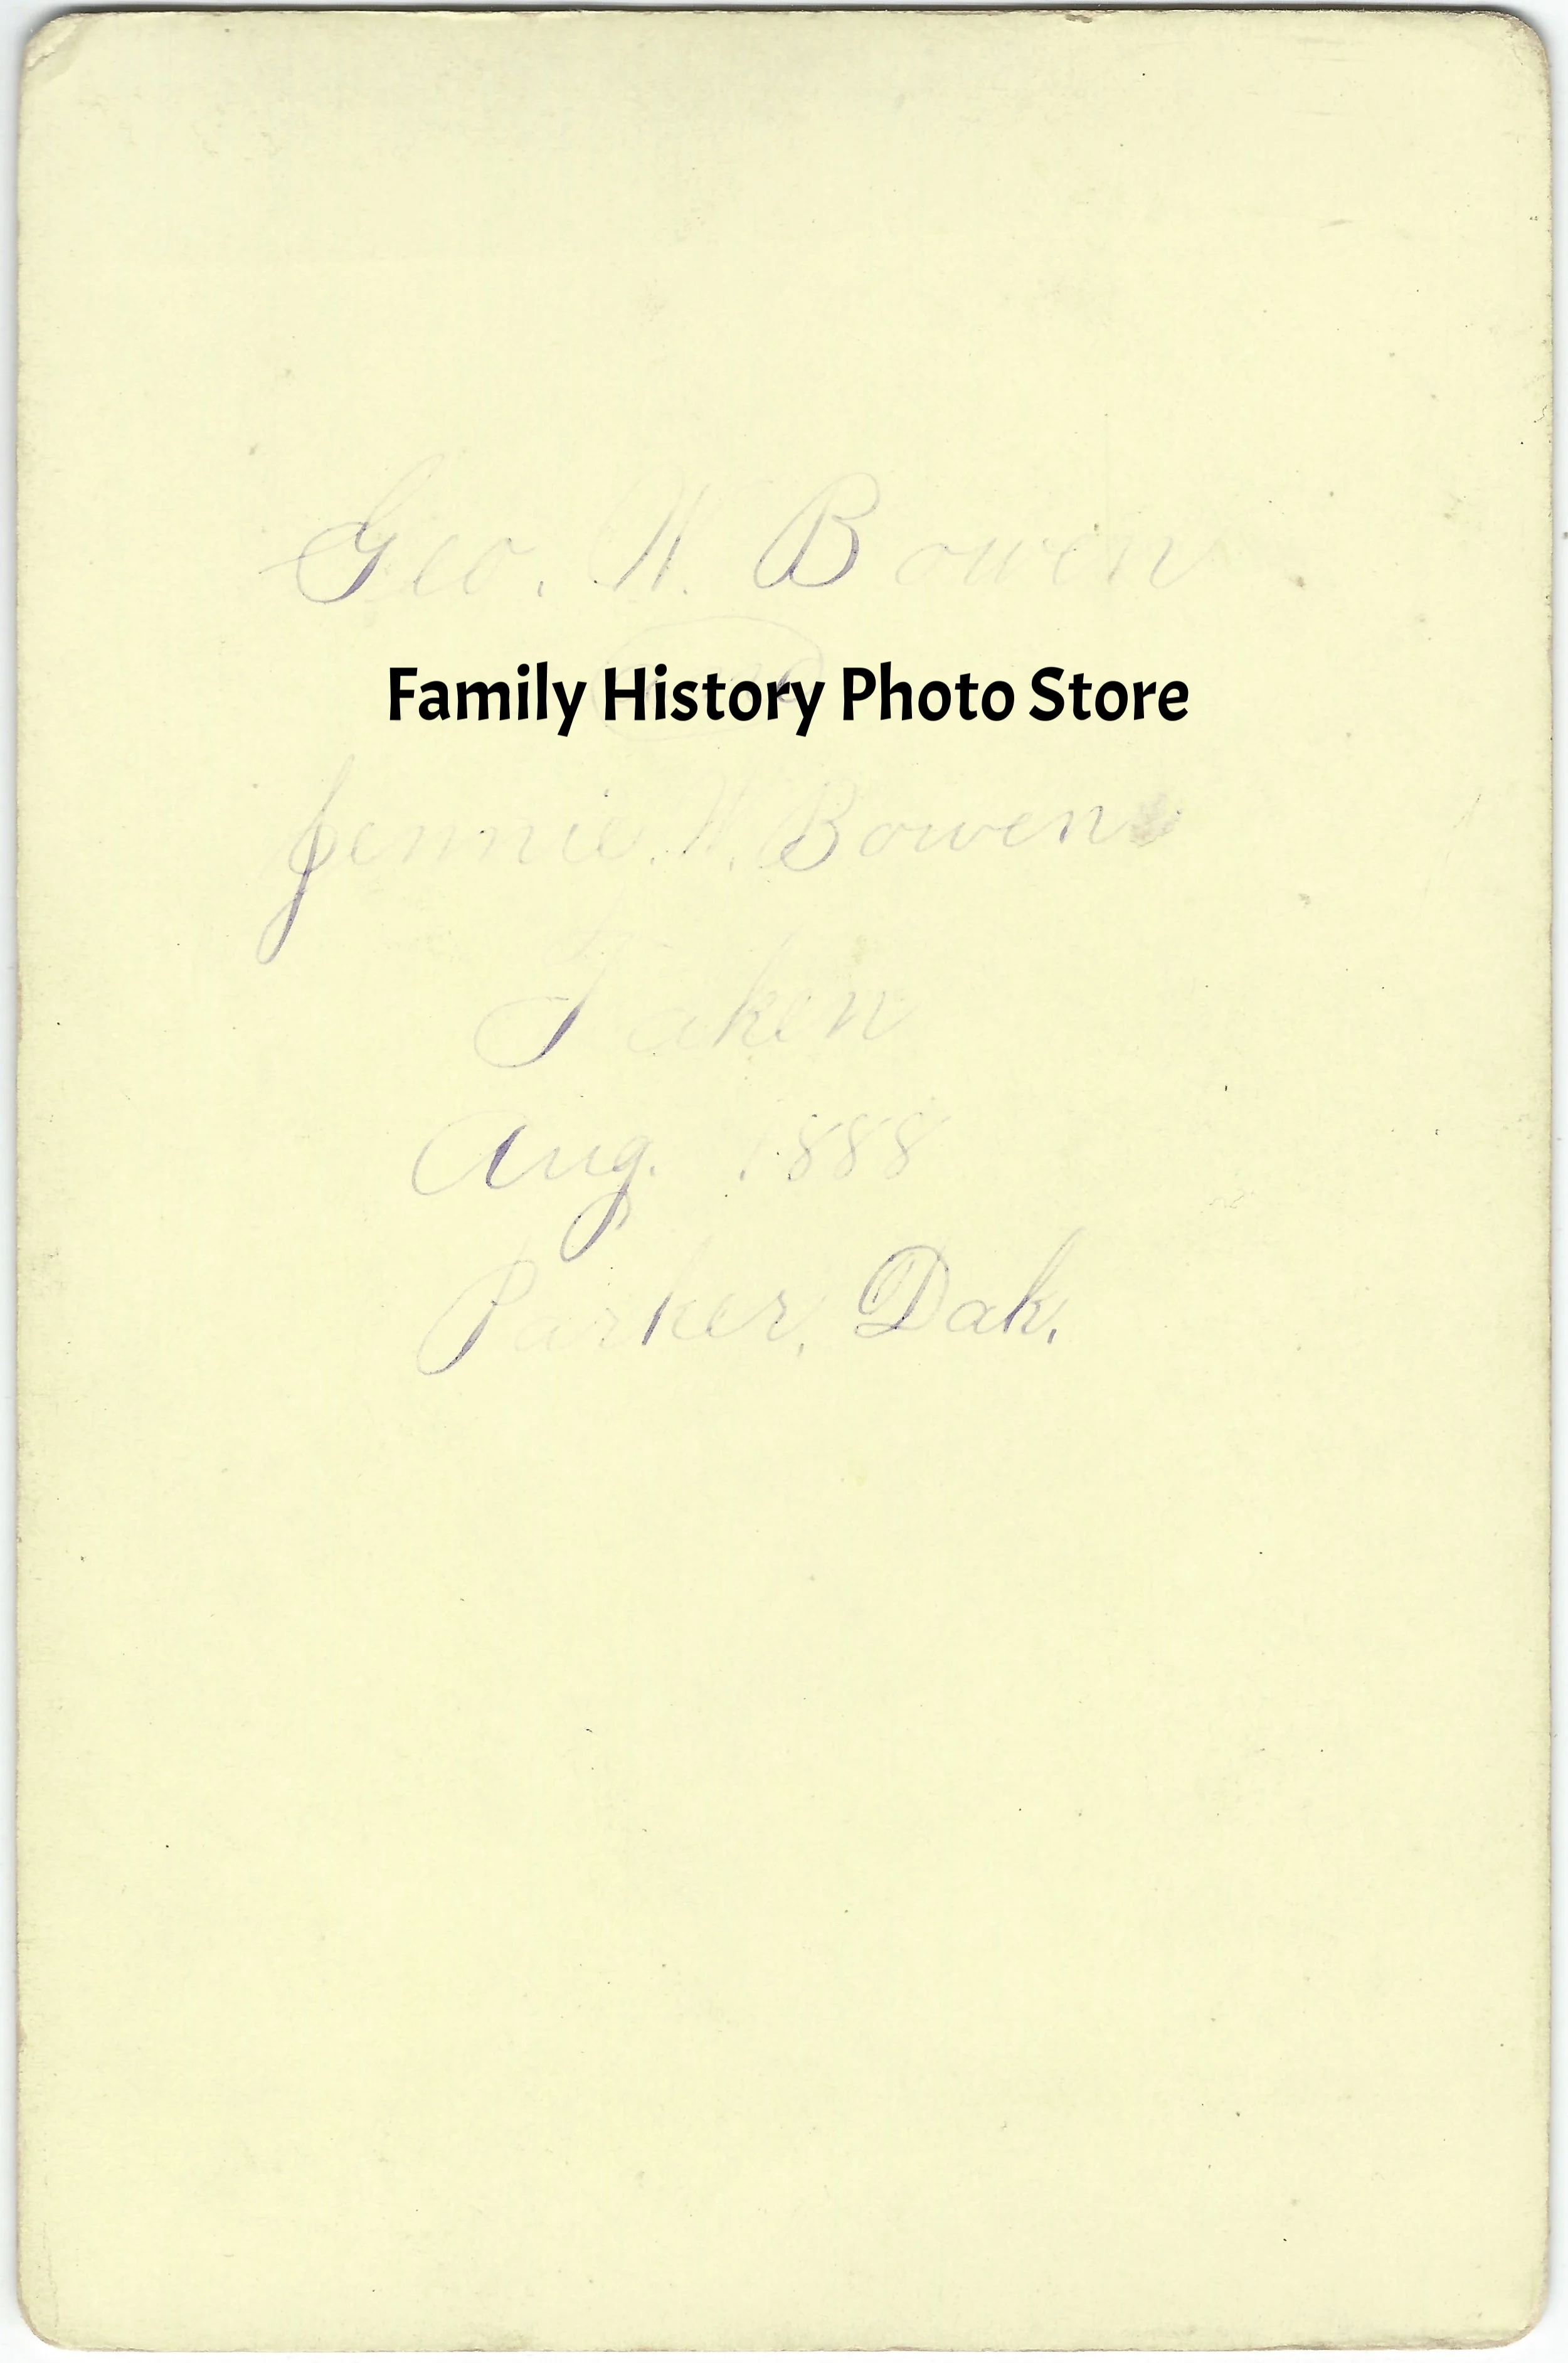 Geo. H. Bowen
and
Family History Photo Store
Jennie. H. Bowen
Taken
Aug. 1888
Parker, Dak.